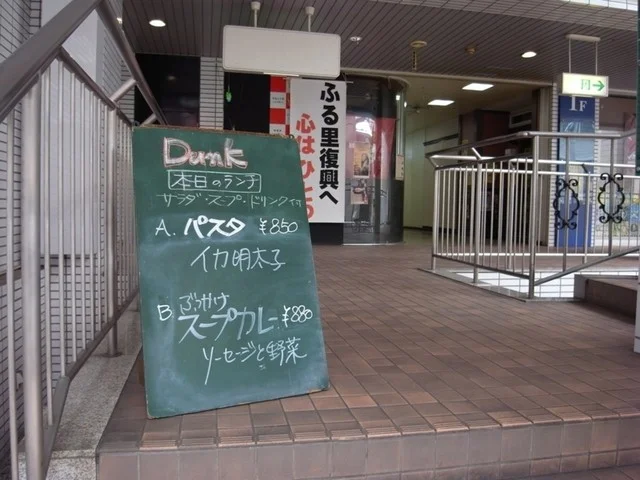 Dunk
本日のランチ
サラダ・スープ・ドリンク付
A. パスタ ¥850
イカ明太子
B. ぶっかけ
スープカレー ¥880
ソーセージと野菜
ふる里復興へ
心はひとつ
1F